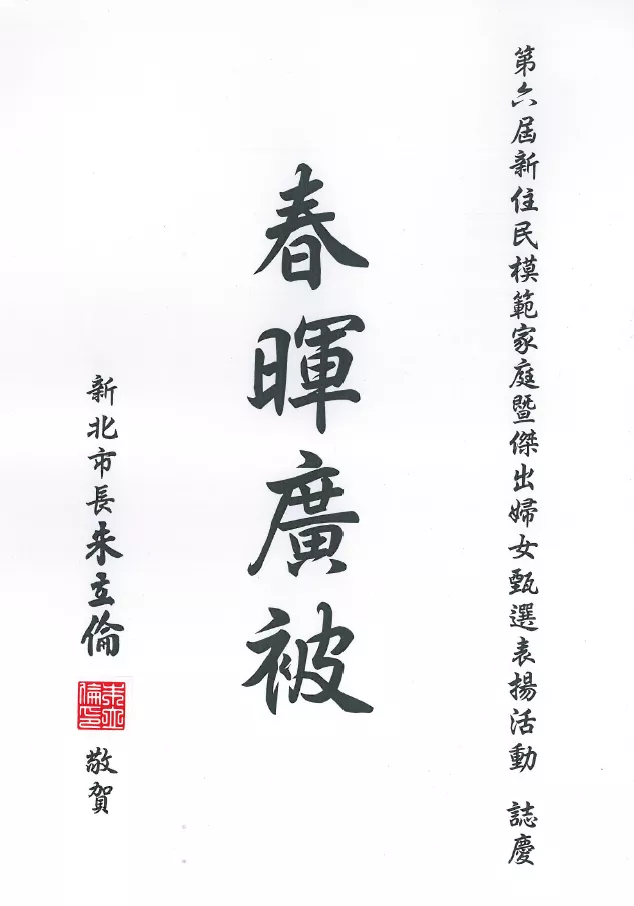 第六屆新住民模範家庭暨傑出婦女甄選表揚活動 誌慶
春暉廣被
新北市長朱立倫
朱立倫印
敬賀